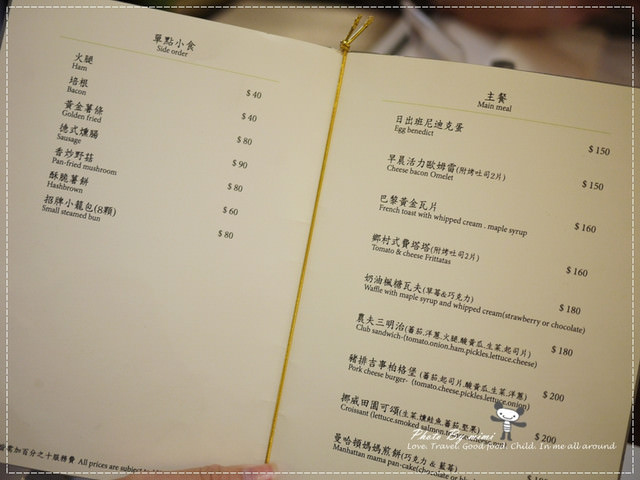 單點小食
Side order
火腿
Ham
$ 40
培根
Bacon
$ 40
黃金薯條
Golden fried
$ 80
德式燻腸
Sausage
$ 90
香炒野菇
Pan-fried mushroom
$ 80
酥脆薯餅
Hashbrown
$ 60
招牌小籠包(8顆)
Small steamed bun
$ 80
加百分之十服務費 All prices are subject to
主餐
Main meal
日出班尼迪克蛋
Egg benedict
$ 150
早晨活力歐姆雷(附烤吐司2片)
Cheese bacon Omelet
$ 150
巴黎黃金瓦片
French toast with whipped cream . maple syrup
$ 160
鄉村式費塔塔(附烤吐司2片)
Tomato & cheese Frittatas
$ 160
奶油楓糖瓦夫(草莓&巧克力)
Waffle with maple syrup and whipped cream(strawberry or chocolate)
$ 180
農夫三明治(蕃茄.洋蔥.火腿.酸黃瓜.生菜.起司片)
Club sandwich-(tomato.onion.ham.pickles.lettuce.cheese)
$ 180
豬排吉事柏格堡 (蕃茄.起司片.酸黃瓜.生菜.洋蔥)
Pork cheese burger- (tomato.cheese.pickles.lettuce.onion)
$ 200
挪威田園可頌(生菜.燻鮭魚.蕃茄.堅果)
Croissant (lettuce.smoked salmon.
$ 200
曼哈頓媽媽煎餅(巧克力 & 藍莓)
Manhattan mama pan-cake(chocolate or
Photo By mimi
Love. Travel. Good food. Child. In me all around